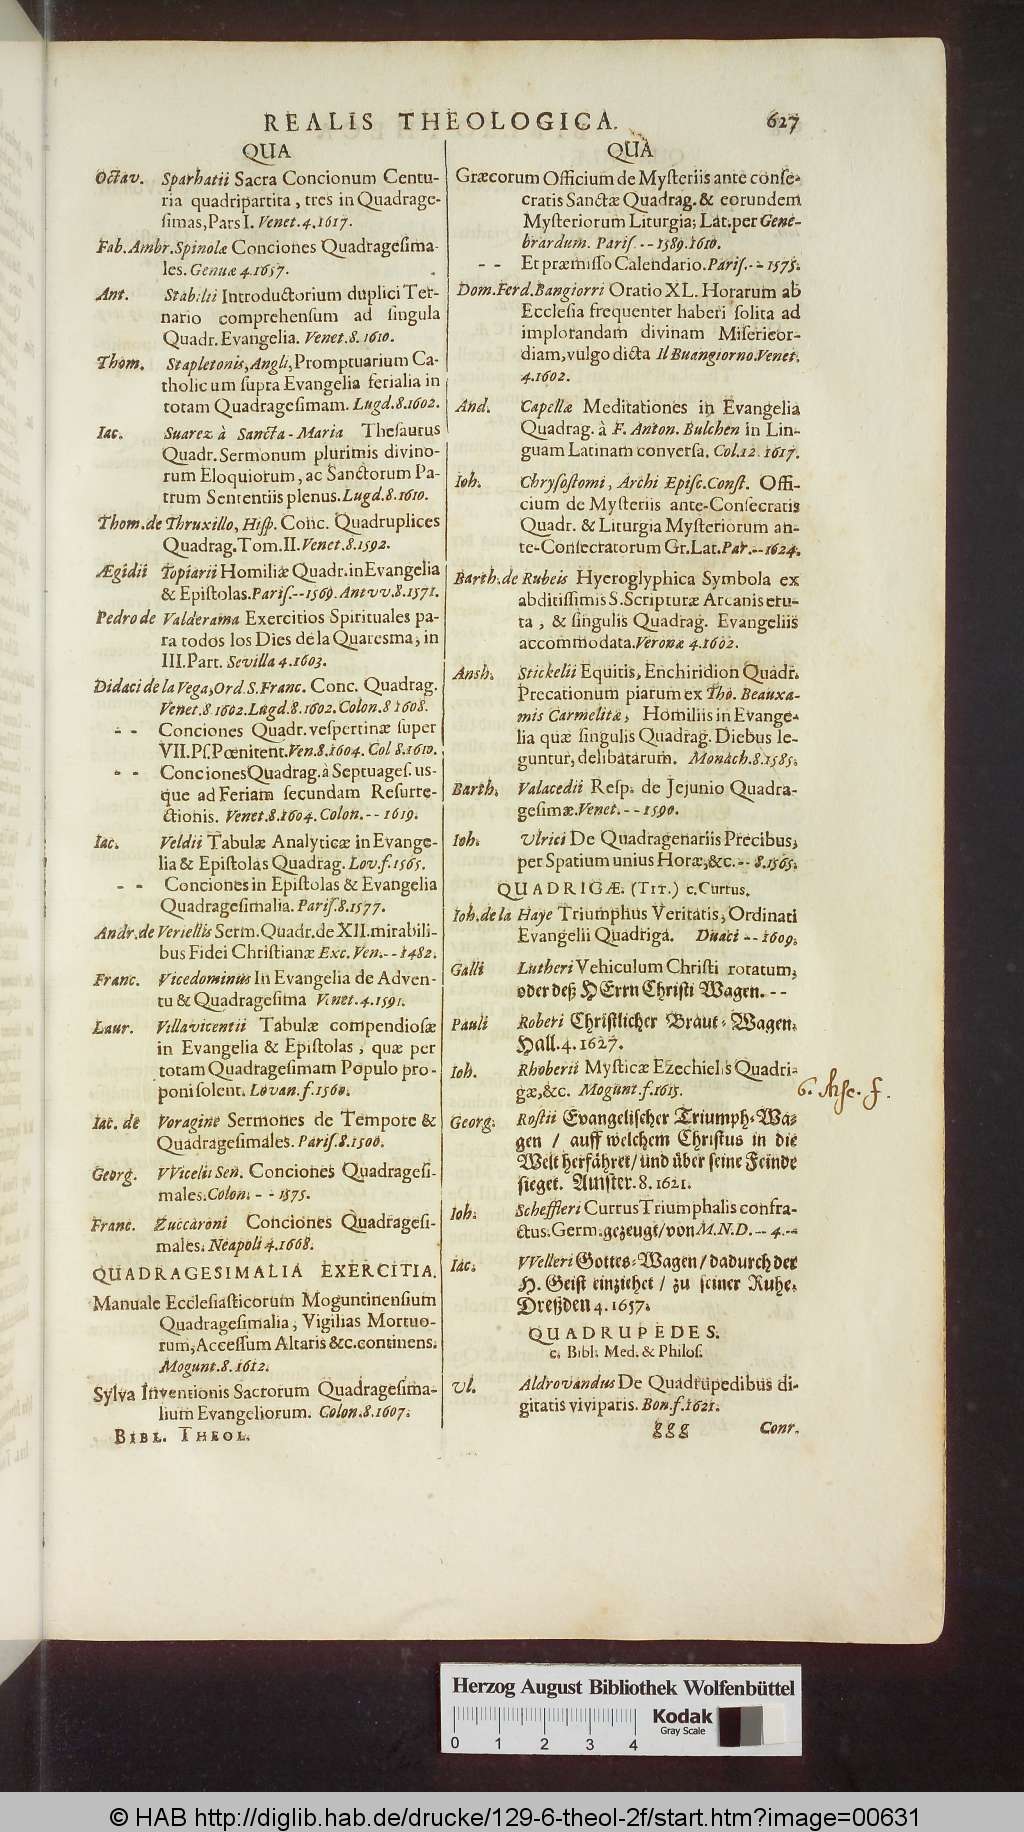 REALIS THEOLOGICA.
627
QUA
Octav. Sparhatii Sacra Concionum Centu-
ria quadripartita, tres in Quadrage-
simas, Pars I. Venet. 4. 1617.
Fab. Ambr. Spinolæ Conciones Quadragesima-
les. Genuæ 4. 1657.
Ant. Stabilii Introductorium duplici Ter-
nario comprehensum ad singula
Quadr. Evangelia. Venet. 8. 1610.
Thom. Stapletonis, Angli, Promptuarium Ca-
tholicum supra Evangelia ferialia in
totam Quadragesimam. Lugd. 8. 1602.
Iac. Suarez à Sancta-Maria Thesaurus
Quadr. Sermonum plurimis divino-
rum Eloquiorum, ac Sanctorum Pa-
trum Sententiis plenus. Lugd. 8. 1610.
Thom. de Thruxillo, Hisp. Conc. Quadruplices
Quadrag. Tom. II. Venet. 8. 1592.
Ægidii Topiarii Homiliæ Quadr. in Evangelia
& Epistolas. Paris. -- 1569. Antvv. 8. 1571.
Pedro de Valderama Exercitios Spirituales pa-
ra todos los Dies de la Quaresma, in
III. Part. Sevilla 4. 1603.
Didaci de la Vega, Ord. S. Franc. Conc. Quadrag.
Venet. 8. 1602. Lugd. 8. 1602. Colon. 8 1608.
- - Conciones Quadr. vespertinæ super
VII. Ps. Pœnitent. Ven. 8. 1604. Col 8. 1610.
- - Conciones Quadrag. à Septuages. us-
que ad Feriam secundam Resurre-
ctionis. Venet. 8. 1604. Colon. -- 1619.
Iac. Veldii Tabulæ Analyticæ in Evange-
lia & Epistolas Quadrag. Lov. f. 1565.
- - Conciones in Epistolas & Evangelia
Quadragesimalia. Paris. 8. 1577.
Andr. de Veriellis Serm. Quadr. de XII. mirabili-
bus Fidei Christianæ Exc. Ven. -- 1482.
Franc. Vicedominus In Evangelia de Adven-
tu & Quadragesima Venet. 4. 1591.
Laur. Villavicentii Tabulæ compendiosæ
in Evangelia & Epistolas, quæ per
totam Quadragesimam Populo pro-
poni solent. Lovan. f. 1560.
Iac. de Voragine Sermones de Tempore &
Quadragesimales. Paris. 8. 1500.
Georg. VVicelii Sen. Conciones Quadragesi-
males. Colon. - - 1575.
Franc. Zuccaroni Conciones Quadragesi-
males. Neapoli 4. 1668.
QUADRAGESIMALIA EXERCITIA.
Manuale Ecclesiasticorum Moguntinensium
Quadragesimalia, Vigilias Mortuo-
rum, Accessum Altaris &c. continens.
Mogunt. 8. 1612.
Sylva Inventionis Sacrorum Quadragesima-
lium Evangeliorum. Colon. 8. 1607.
BIBL. THEOL.
QUA
Græcorum Officium de Mysteriis ante conse-
cratis Sanctæ Quadrag. & eorundem
Mysteriorum Liturgia; Lat. per Gene-
brardum. Paris. -- 1589. 1610.
- - Et præmisso Calendario. Paris. -- 1575.
Dom. Ferd. Bangiorri Oratio XL. Horarum ab
Ecclesia frequenter haberi solita ad
implorandam divinam Misericor-
diam, vulgo dicta Il Buangiorno. Venet.
4. 1602.
And. Capellæ Meditationes in Evangelia
Quadrag. à F. Anton. Bulchen in Lin-
guam Latinam conversa. Col. 12. 1617.
Ioh. Chrysostomi, Archi Episc. Const. Offi-
cium de Mysteriis ante-Consecratis
Quadr. & Liturgia Mysteriorum an-
te-Consecratorum Gr. Lat. Par. -- 1624.
Barth. de Rubeis Hyeroglyphica Symbola ex
abditissimis S. Scripturæ Arcanis eru-
ta, & singulis Quadrag. Evangeliis
accommodata. Veronæ 4. 1602.
Ansh. Stickelii Equitis, Enchiridion Quadr.
Precationum piarum ex Tho. Beauxa-
mis Carmelitæ, Homiliis in Evange-
lia quæ singulis Quadrag. Diebus le-
guntur, delibatarum. Monach. 8. 1585.
Barth. Valacedii Resp. de Jejunio Quadra-
gesimæ. Venet. -- 1590.
Ioh. Ulrici De Quadragenariis Precibus,
per Spatium unius Horæ, &c. -- 8. 1565.
QUADRIGÆ. (TIT.) c. Currus.
Ioh. de la Haye Triumphus Veritatis, Ordinati
Evangelii Quadriga. Duaci -- 1609.
Galli Lutheri Vehiculum Christi rotatum,
oder deß HErrn Christi Wagen. --
Pauli Roberi Christlicher Braut-Wagen.
Hall. 4. 1627.
Ioh. Rhoberii Mysticæ Ezechielis Quadri-
gæ, &c. Mogunt. f. 1615.
Georg. Rostii Evangelischer Triumph-Wa-
gen / auff welchem Christus in die
Welt herfähret / und über seine Feinde
sieget. Amster. 8. 1621.
Ioh. Scheffleri Currus Triumphalis confra-
ctus. Germ. gezeugt / von M. N. D. -- 4. --
Iac. VVelleri Gottes-Wagen / dadurch der
H. Geist einziehet / zu seiner Ruhe.
Dreßden 4. 1657.
QUADRUPEDES.
c. Bibl. Med. & Philos.
Ul. Aldrovandus De Quadrupedibus di-
gitatis viviparis. Bon. f. 1621.
ggg Conr.
Herzog August Bibliothek Wolfenbüttel
0 1 2 3 4
Kodak
Gray Scale
© HAB http://diglib.hab.de/drucke/129-6-theol-2f/start.htm?image=00631